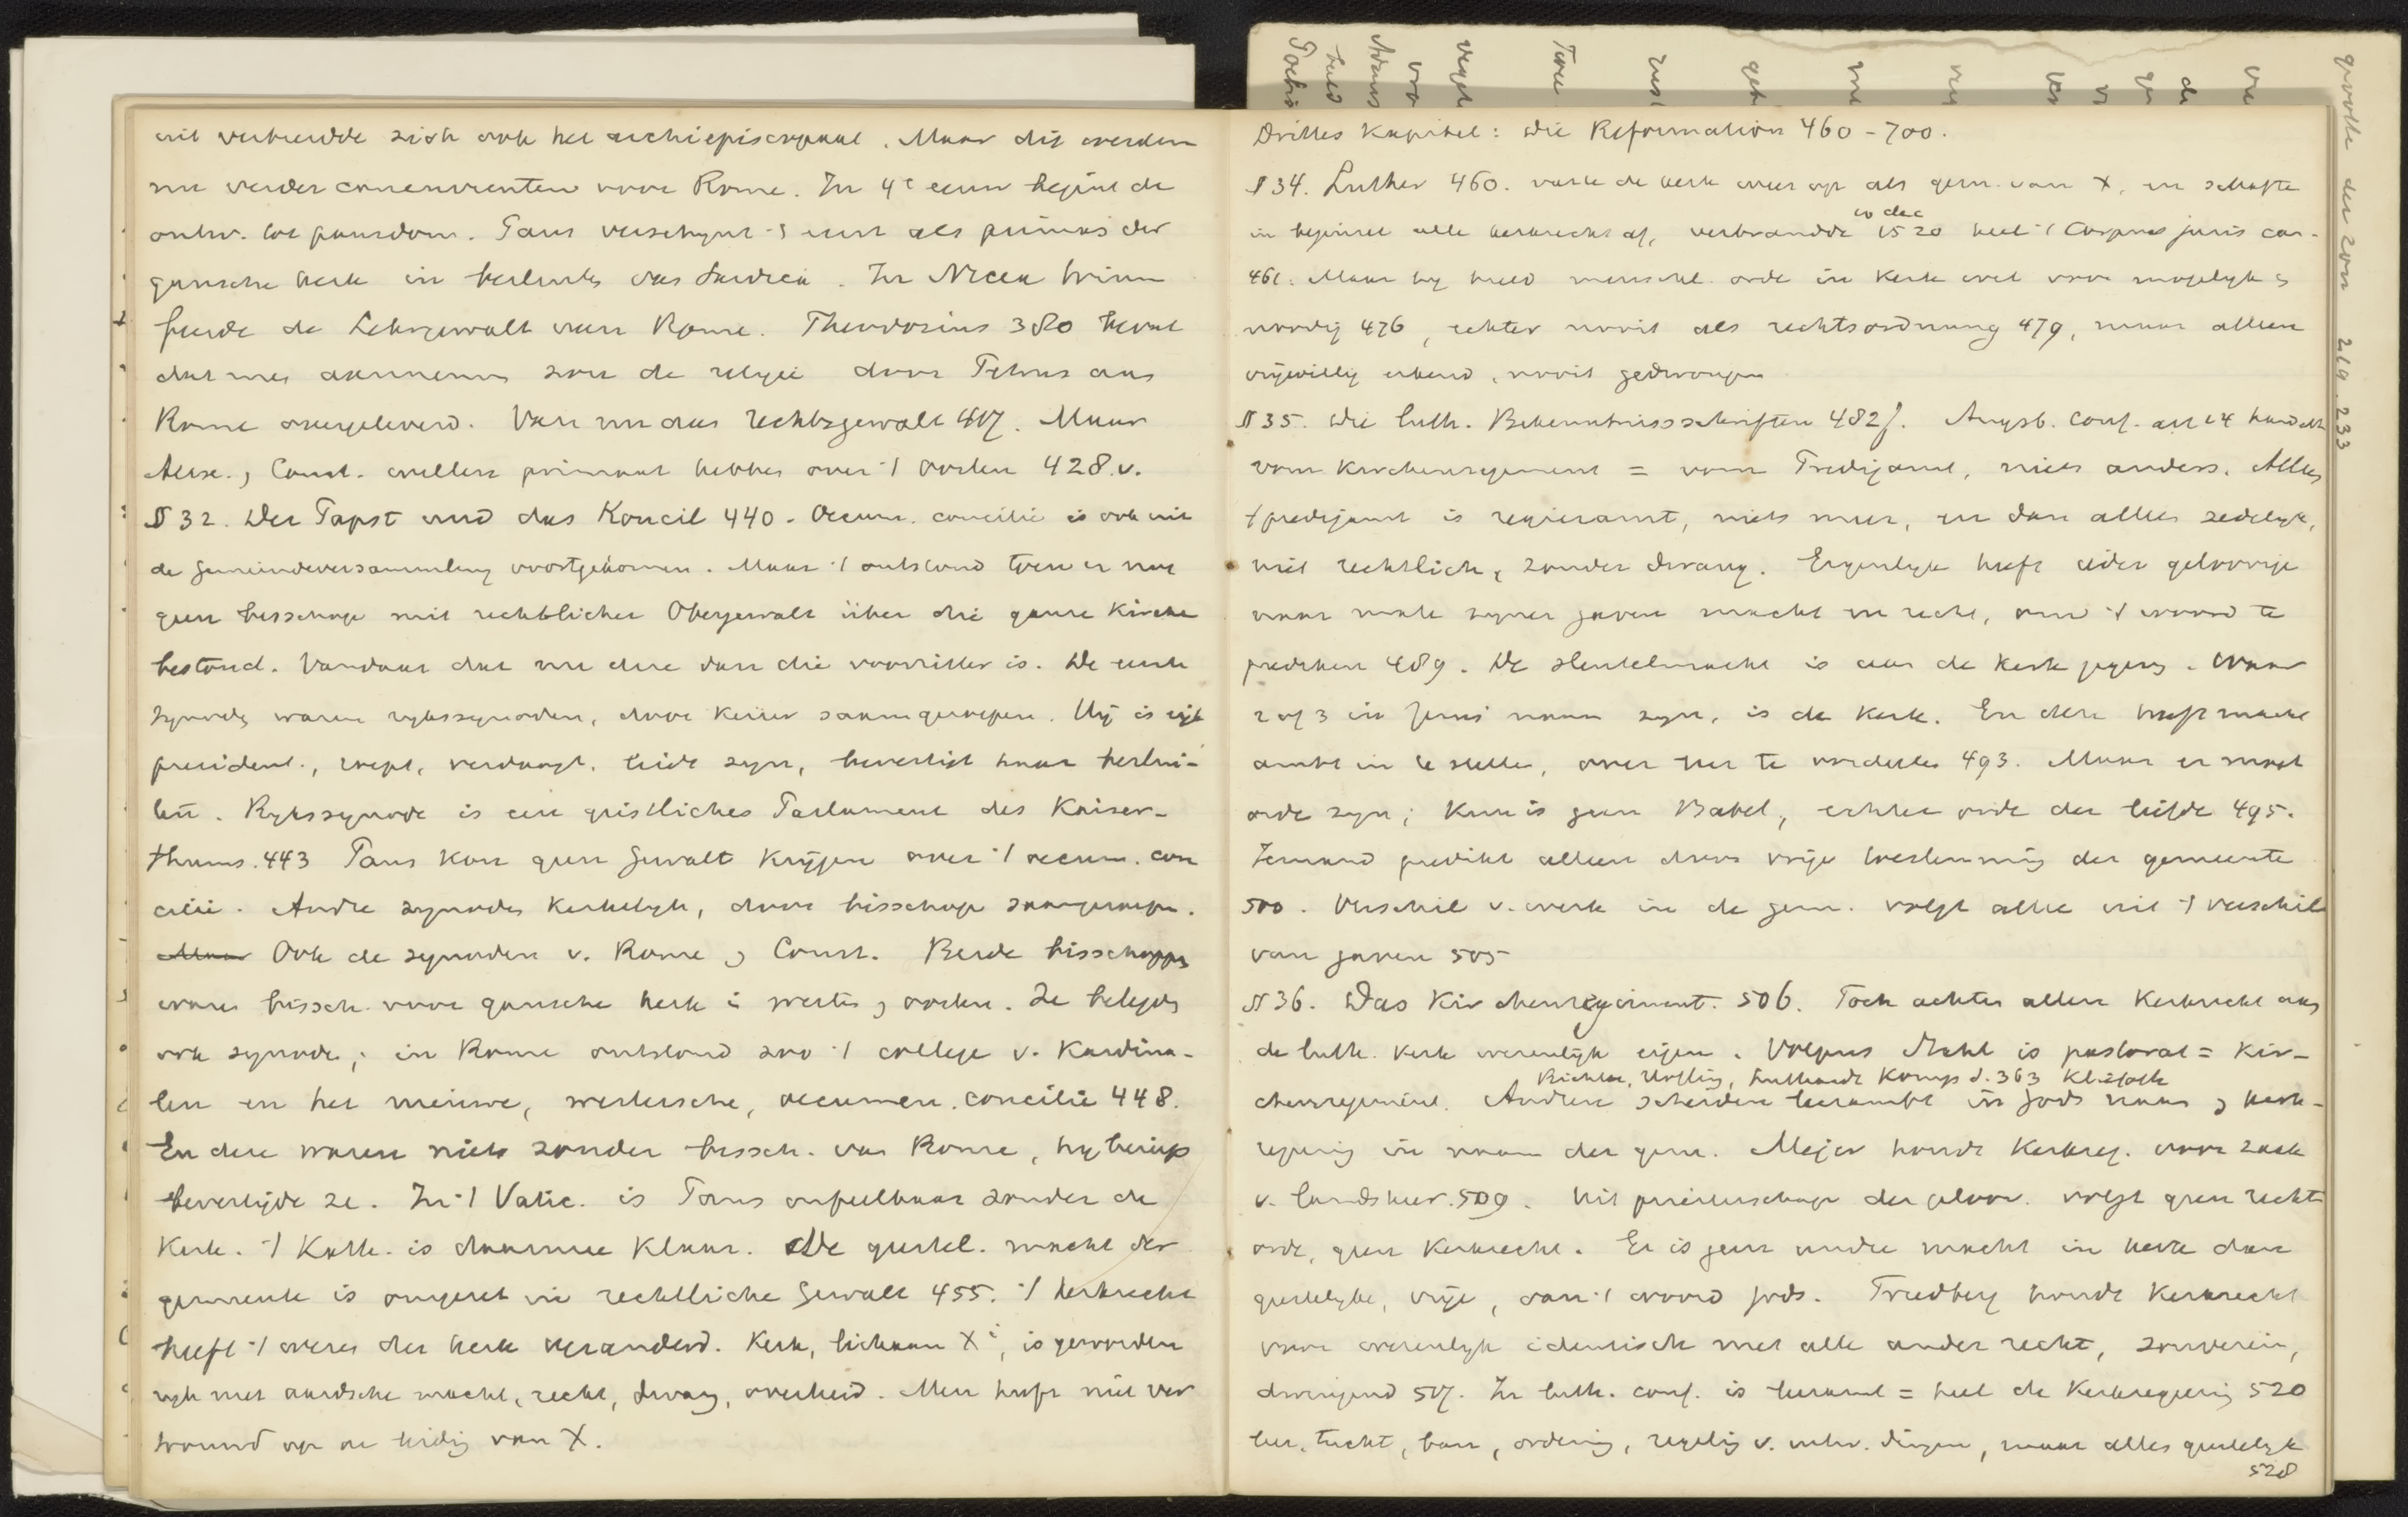 uit verbreidde zich ook het archiepiscopaat. Maar dij werden
nu verder concurrenten voor Rome. In 4e eeuw begint de
ontw. tot pausdom. Paus verschynt 't eerst als primas der
gansche kerk in besluits van Sardica. In Nicea
de Lehrgewalt van Rome. Theodosius 380 beval
dat men aannemen zou de religie door Petrus aan
Rome overgeleverd. Van nu aan Rechtsgewalt 417. Maar
Alex. , Const. willen primaat hebben over 't Oosten 428.v.
§ 32. Der Papst und das Koncil 440. Oecum. concilie is ook uit
de Gemeindeversammlung voortgekomen. Maar 't ontstond toen er nog
geen bisschop mit rechtlicher Obergewalt über die ganze Kirche
bestond. Vandaar dat nu deze dan die voorzitter is. De eerste
synodes waren rykssynoden, door keizer saamgeroepen. Hij is ryk
president., roept, verdaagt, leidt zyn, bevestigt haar beslui-
ten. Rykssynode is een geistliches Parlament des Kaiser-
thums. 443 Paus kon geen Gewalt krijgen over 't oecum. con
cilie. Andre synodes kerkelyk, door bisschop saamgeroepen.
Maar Ook de synoden v. Rome , Const. Beide bisschoppen
waren bissch. voor gansche kerk i westen , oosten. Ze belegden
ook synode; in Rome ontstond zoo 't college v. Kardina-
len en het nieuwe, westersche, oecumen. concilie 448.
En deze waren niets zonder bissch. van Rome, hy beriep
bevestigde ze. In 't Vatic. is Paus onfeilbaar zonder de
Kerk. 't Kath. is daarmee klaar. De geestel. macht der
gemeente is omgezet in rechtliche Gewalt 455. 't kerkrecht
heeft 't wezen der kerk veranderd. Kerk, lichaam Xi, is geworden
ryk met aardsche macht, recht, dwang, overheid. Men heeft niet ver
trouwd op de leidig van X.
Drittes Kapitel: Die Reformation 460-700.
§ 34. Luther 460. vatte de kerk weer op als gem. van X, en schafte
10 dec
in beginsel alle kerkrecht af, verbrandde 1520 heel 't Corpus juris can.
461. Maar hy hield menschl. orde in Kerk wel voor mogelyk ,
noodig 476, echter nooit als rechtsordnung 479, maar alleen
vrijwillig erkend, nooit gedwongen
§ 35. Die luth. Bekenntnissschriften 482f. Augsb. Conf. art 14 handelt
vom Kirchenregiment = vom Predigamt, niets anders. Alles
't predigamt is regieramt, niets meer, en dan alles zedelyk,
niet rechtlich, zonder dwang. Eigenlyk heeft ieder geloovige
naar mate zyner gaven macht en recht, om 't woord te
prediken 489. De sleutelmacht is aan de kerk gegeven. Waar
2 of 3 in Jezus' naam zyn, is de Kerk. En deze heeft macht
ambt in te stellen, over leer te oordeelen 493. Maar er moet
orde zyn; Kerk is geen Babel, echter orde der liefde 495.
Iemand predikt alleen door vrije toestemming der gemeente
500. Verschil v. werk in de gem. volgt alleen uit 't verschil
van gaven 505
§ 36. Das Kirchenregiment. 506. Toch achten allen Kerkrecht aan
de luth. kerk wezenlijk eigen. Volgens Stahl is pastorat = Kir-
Richter, Höfling, Luthardt Komp d. 363 Kliefoth
chenregiment. Andren scheiden leerambt in Gods naam , kerk-
regeering in naam der gem. Mejer houdt Kerkreg. voor zaak
v. landsheer. 509. Uit priesterschap der geloov. volgt geen rechts
orde, geen Kerkrecht. Er is geen andre macht in kerk dan
geestelyke, vrije, van 't woord Gods. Friedberg houdt Kerkrecht
voor wezenlyk identisch met alle ander recht, souverein,
dwingend 517. In luth. conf. is leerambt = heel de Kerkregeering 520
leer, tucht, ban, ordening, regeling v. uitw. dingen, maar alles geestelyk
528
grootte der zoon 219.233